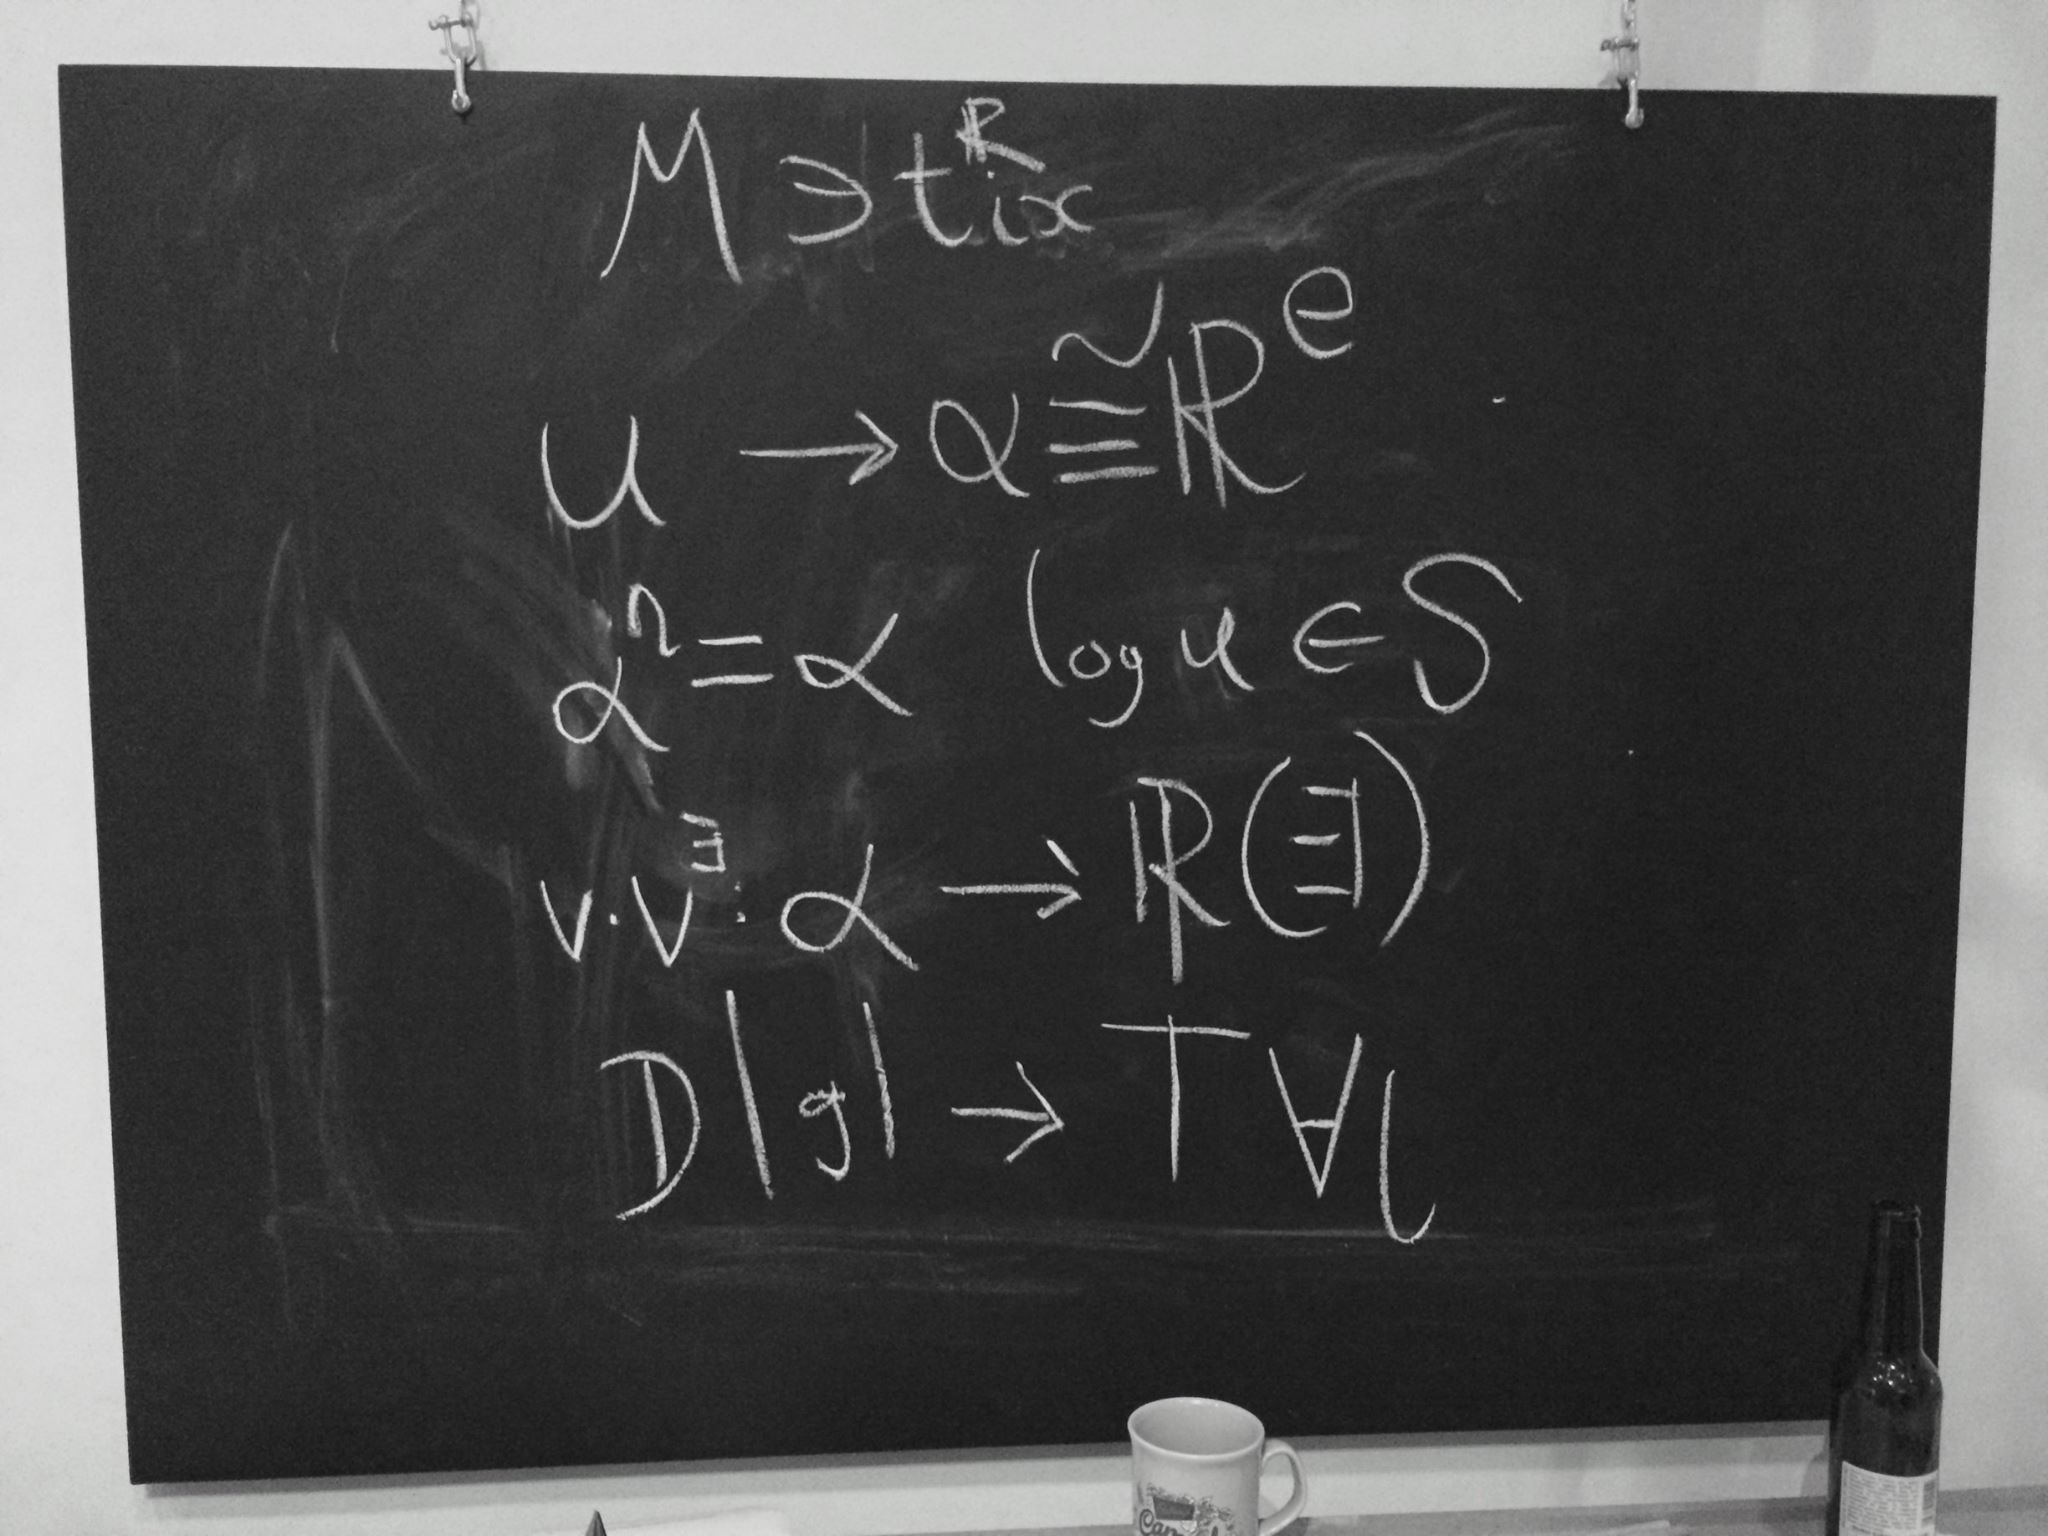 M ∋ t^ℝ ix
u → α ≅ ℝ^e
α^n = α log u ∈ S
v·v^∃ : α → ℝ(∃)
D|g| → T∀l